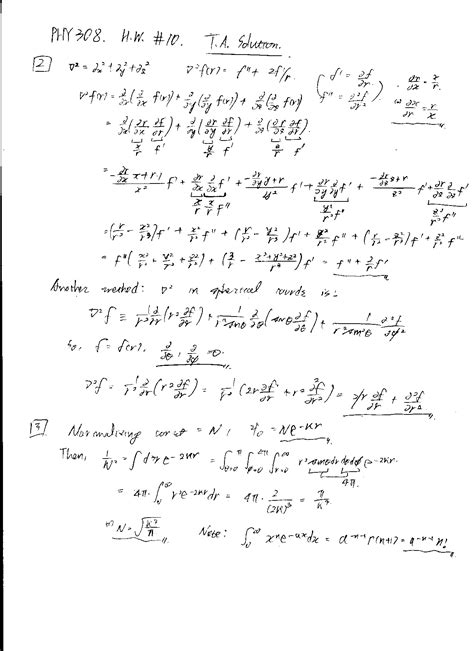 PHY308. H.W. #10. T.A. Solution.
[2] ∇² = ∂x² + ∂y² + ∂z² ∇²f(r) = f'' + 2f'/r. ( f' = ∂f/∂r, f'' = ∂²f/∂r² ) ∂r/∂x = x/r
∇²f(r) = ∂/∂x(∂/∂x f(r)) + ∂/∂y(∂/∂y f(r)) + ∂/∂z(∂/∂z f(r))
= ∂/∂x(∂r/∂x ∂f/∂r) + ∂/∂y(∂r/∂y ∂f/∂r) + ∂/∂z(∂r/∂z ∂f/∂r).
x/r f' y/r f' z/r f'
x/r x/r f'' y²/r² f'' z²/r² f''
= (1/r - x²/r³)f' + x²/r² f'' + (1/r - y²/r³)f' + y²/r² f'' + (1/r - z²/r³)f' + z²/r² f''
= f''(x²/r² + y²/r² + z²/r²) + (3/r - x²+y²+z²/r³)f' = f'' + 2/r f'
Another method: ∇² in spherical coords is:
∇²f ≡ 1/r² ∂/∂r(r² ∂f/∂r) + 1/r²sinθ ∂/∂θ(sinθ ∂f/∂θ) + 1/r²sin²θ ∂²f/∂φ²
So, f = f(r), ∂/∂θ, ∂/∂φ → 0.
∇²f = 1/r² ∂/∂r(r² ∂f/∂r) = 1/r²(2r ∂f/∂r + r² ∂²f/∂r²) = 2/r ∂f/∂r + ∂²f/∂r²
[3] Normalizing const = N, = Ne^-κr
Then, 1/N² = ∫ e^-2κr = ∫ ∫ ∫ r² sinθ dr dθ dφ e^-2κr
4π.
= 4π · ∫₀^∞ r² e^-2κr dr = 4π · 2/(2κ)³ = π/κ³
N = √(κ³/π) Note: ∫₀^∞ xⁿ e^-ax dx = a^-n-1 Γ(n+1) = a^-n-1 n!